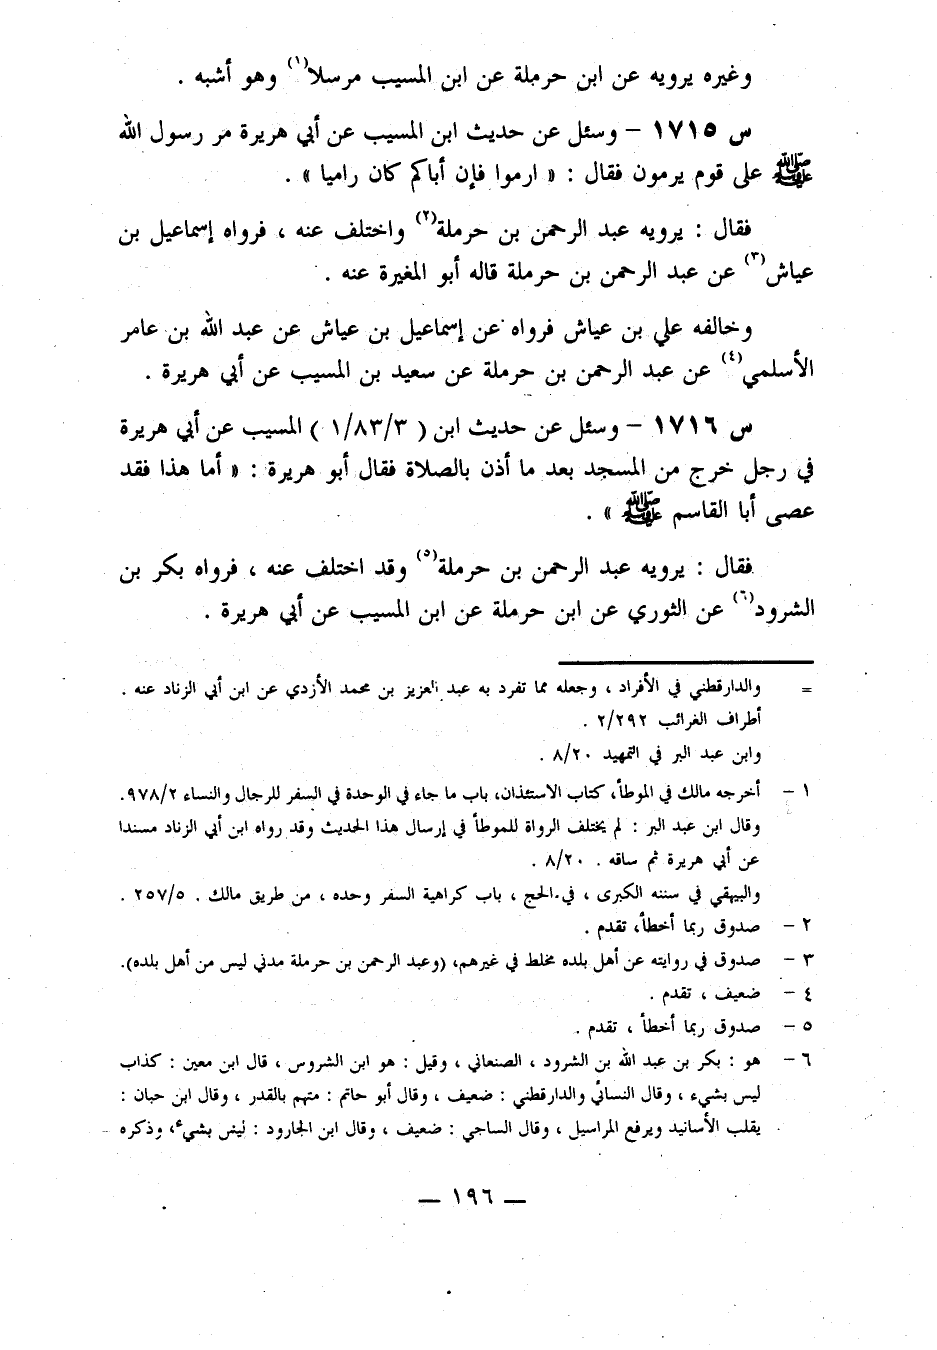 وغيره يرويه عن ابن حرملة عن ابن المسيب مرسلا(١) وهو أشبه .
س ١٧١٥ – وسئل عن حديث ابن المسيب عن أبي هريرة مر رسول الله
ﷺ على قوم يرمون فقال : « ارموا فإن أباكم كان راميا » .
فقال : يرويه عبد الرحمن بن حرملة(٢) واختلف عنه ، فرواه إسماعيل بن
عياش(٣) عن عبد الرحمن بن حرملة قاله أبو المغيرة عنه .
وخالفه علي بن عياش فرواه عن إسماعيل بن عياش عن عبد الله بن عامر
الأسلمي(٤) عن عبد الرحمن بن حرملة عن سعيد بن المسيب عن أبي هريرة .
س ١٧١٦ – وسئل عن حديث ابن ( ١/٨٣/٣ ) المسيب عن أبي هريرة
في رجل خرج من المسجد بعد ما أذن بالصلاة فقال أبو هريرة : « أما هذا فقد
عصى أبا القاسم ﷺ » .
فقال : يرويه عبد الرحمن بن حرملة(٥) وقد اختلف عنه ، فرواه بكر بن
الشرود(٦) عن الثوري عن ابن حرملة عن ابن المسيب عن أبي هريرة .
= والدارقطني في الأفراد ، وجعله مما تفرد به عبد العزيز بن محمد الأزدي عن ابن أبي الزناد عنه .
أطراف الغرائب ٢/٢٩٢ .
وابن عبد البر في التمهيد ٨/٢٠ .
١ – أخرجه مالك في الموطأ، كتاب الاستئذان، باب ما جاء في الوحدة في السفر للرجال والنساء ٩٧٨/٢.
وقال ابن عبد البر : لم يختلف الرواة للموطأ في إرسال هذا الحديث وقد رواه ابن أبي الزناد مسندا
عن أبي هريرة ثم ساقه . ٨/٢٠ .
والبيهقي في سننه الكبرى ، في الحج ، باب كراهية السفر وحده ، من طريق مالك . ٢٥٧/٥ .
٢ – صدوق ربما أخطأ، تقدم .
٣ – صدوق في روايته عن أهل بلده مخلط في غيرهم، (وعبد الرحمن بن حرملة مدني ليس من أهل بلده).
٤ – ضعيف ، تقدم .
٥ – صدوق ربما أخطأ ، تقدم .
٦ – هو : بكر بن عبد الله بن الشرود ، الصنعاني ، وقيل : هو ابن الشروس ، قال ابن معين : كذاب
ليس بشيء ، وقال النسائي والدارقطني : ضعيف ، وقال أبو حاتم : متهم بالقدر ، وقال ابن حبان :
يقلب الأسانيد ويرفع المراسيل ، وقال الساجي : ضعيف ، وقال ابن الجارود : ليس بشيء، وذكره
— ١٩٦ —